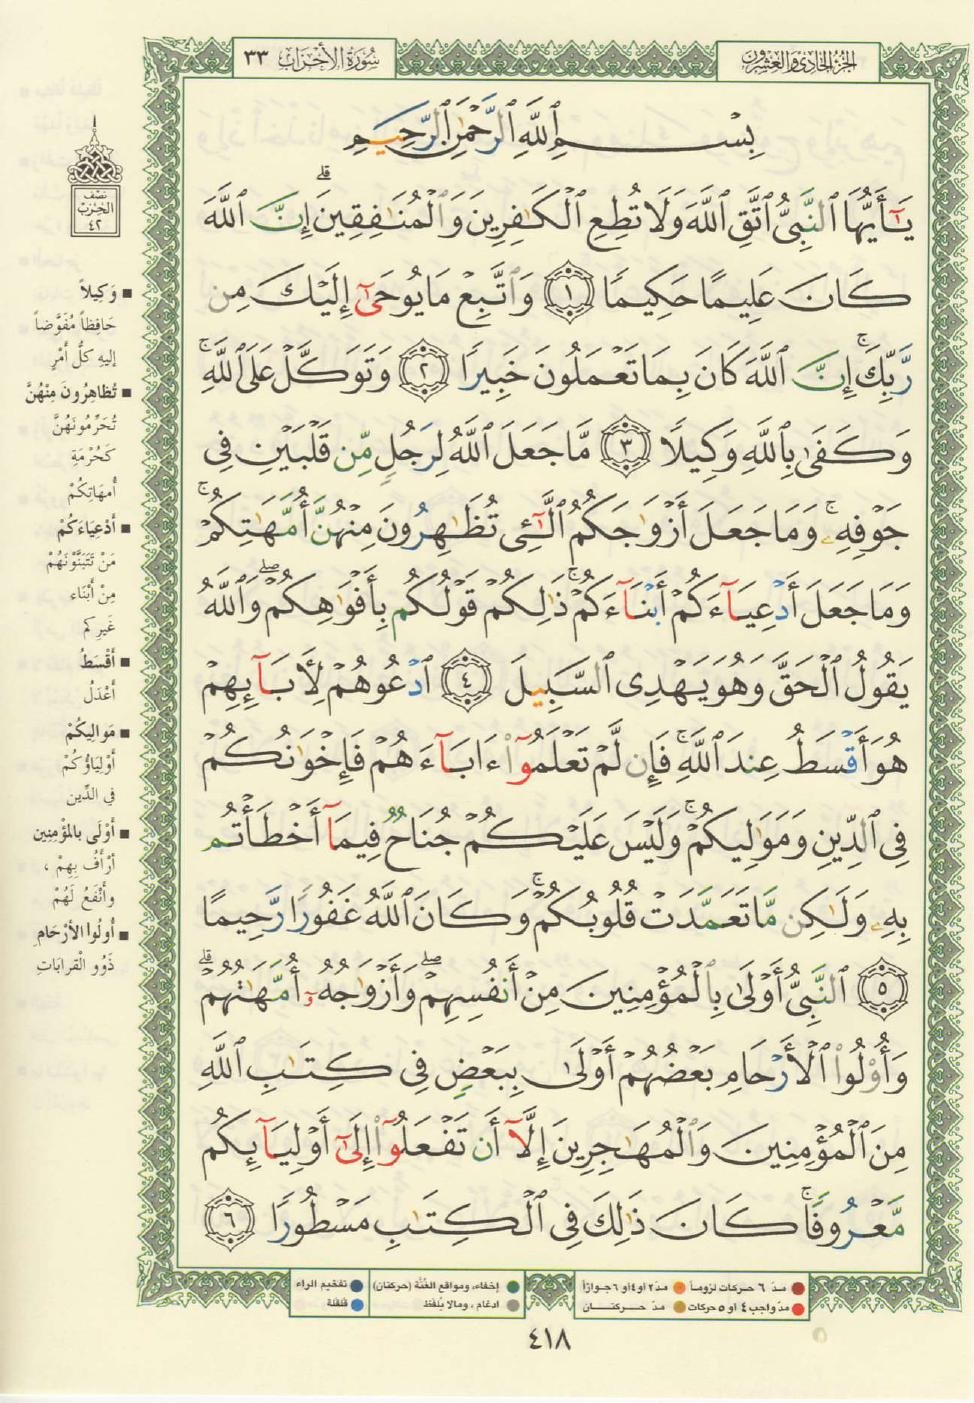 سُورَةُ الأَحْزَاب ٣٣
الجُزْءُ الحَادِي وَالعِشْرُون
بِسْمِ ٱللَّهِ ٱلرَّحْمَٰنِ ٱلرَّحِيمِ
يَٰٓأَيُّهَا ٱلنَّبِىُّ ٱتَّقِ ٱللَّهَ وَلَا تُطِعِ ٱلْكَٰفِرِينَ وَٱلْمُنَٰفِقِينَ ۗ إِنَّ ٱللَّهَ
كَانَ عَلِيمًا حَكِيمًا ١ وَٱتَّبِعْ مَا يُوحَىٰٓ إِلَيْكَ مِن
رَّبِّكَ ۚ إِنَّ ٱللَّهَ كَانَ بِمَا تَعْمَلُونَ خَبِيرًا ٢ وَتَوَكَّلْ عَلَى ٱللَّهِ ۚ
وَكَفَىٰ بِٱللَّهِ وَكِيلًا ٣ مَّا جَعَلَ ٱللَّهُ لِرَجُلٍ مِّن قَلْبَيْنِ فِى
جَوْفِهِۦ ۚ وَمَا جَعَلَ أَزْوَٰجَكُمُ ٱلَّٰٓـِٔى تُظَٰهِرُونَ مِنْهُنَّ أُمَّهَٰتِكُمْ ۚ
وَمَا جَعَلَ أَدْعِيَآءَكُمْ أَبْنَآءَكُمْ ۚ ذَٰلِكُمْ قَوْلُكُم بِأَفْوَٰهِكُمْ ۖ وَٱللَّهُ
يَقُولُ ٱلْحَقَّ وَهُوَ يَهْدِى ٱلسَّبِيلَ ٤ ٱدْعُوهُمْ لِءَابَآئِهِمْ
هُوَ أَقْسَطُ عِندَ ٱللَّهِ ۚ فَإِن لَّمْ تَعْلَمُوٓا۟ ءَابَآءَهُمْ فَإِخْوَٰنُكُمْ
فِى ٱلدِّينِ وَمَوَٰلِيكُمْ ۚ وَلَيْسَ عَلَيْكُمْ جُنَاحٌ فِيمَآ أَخْطَأْتُم
بِهِۦ وَلَٰكِن مَّا تَعَمَّدَتْ قُلُوبُكُمْ ۚ وَكَانَ ٱللَّهُ غَفُورًا رَّحِيمًا
٥ ٱلنَّبِىُّ أَوْلَىٰ بِٱلْمُؤْمِنِينَ مِنْ أَنفُسِهِمْ ۖ وَأَزْوَٰجُهُۥٓ أُمَّهَٰتُهُمْ ۗ
وَأُو۟لُوا۟ ٱلْأَرْحَامِ بَعْضُهُمْ أَوْلَىٰ بِبَعْضٍ فِى كِتَٰبِ ٱللَّهِ
مِنَ ٱلْمُؤْمِنِينَ وَٱلْمُهَٰجِرِينَ إِلَّآ أَن تَفْعَلُوٓا۟ إِلَىٰٓ أَوْلِيَآئِكُم
مَّعْرُوفًا ۚ كَانَ ذَٰلِكَ فِى ٱلْكِتَٰبِ مَسْطُورًا ٦
نصف
الحزب
٤٢
■ وَكِيلاً
حَافِظاً مُفَوَّضاً
إليهِ كلُّ أَمْرٍ
■ تُظاهِرُونَ مِنْهُنَّ
تُحَرِّمُونَهُنَّ
كَحُرْمَةِ
أُمهَاتِكُمْ
■ أَدْعِيَاءَكُمْ
مَنْ تَتَبَنَّوْنَهُمْ
مِنْ أَبْنَاء
غَيرِكم
■ أَقْسَطُ
أَعْدَلُ
■ مَوَالِيكُمْ
أوْلِيَاؤُكُمْ
في الدِّين
■ أوْلَى بالمؤْمِنِين
أرْأَفُ بِهِمْ ،
وأنْفَعُ لَهُمْ
■ أُولُوا الأَرْحَام
ذَوُو الْقرَابَاتِ
مدّ ٦ حركات لزوماً ● مدّ ٢ او ٤ او ٦ جوازاً
مدّ واجب ٤ او ٥ حركات ● مدّ حركتــان
إخفاء، ومواقع الغُنَّة (حركتان)
ادغام ، ومالا يُلفَظ
تفخيم الراء
قلقلة
٤١٨